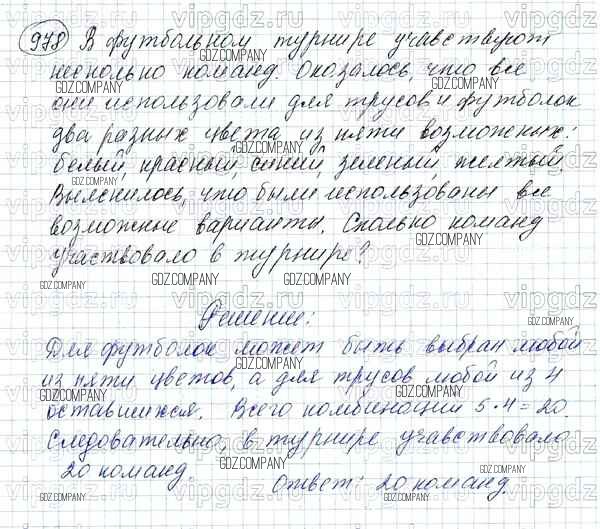 978 В футбольном турнире учавствуют
несколько команд. Оказалось, что все
они использовали для трусов и футболок
два разных цвета из пяти возможных:
белый, красный, синий, зеленый, желтый.
Выяснилось, что были использованы все
возможные варианты. Сколько команд
участвовало в турнире?
Решение:
Для футболок может быть выбран любой
из пяти цветов, а для трусов любой из 4
оставшихся. Всего комбинаций 5·4=20.
Следовательно, в турнире учавствовало
20 команд.
Ответ: 20 команд.
GDZ.COMPANY
vipgdz.ru